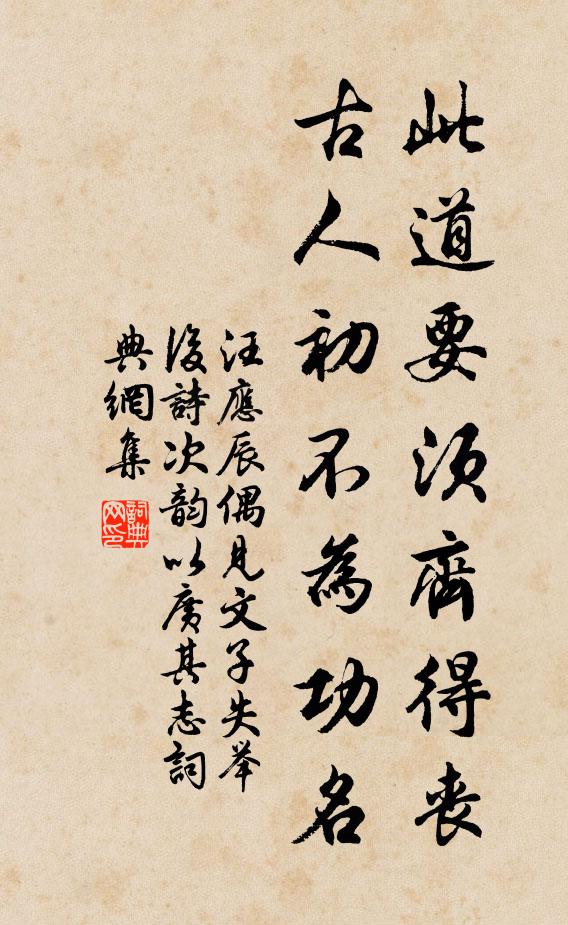 此道要須齊得喪
古人初不為功名
汪應辰偶見文子失举
後詩次韵以廣其志詞
典網集
詞典
网印